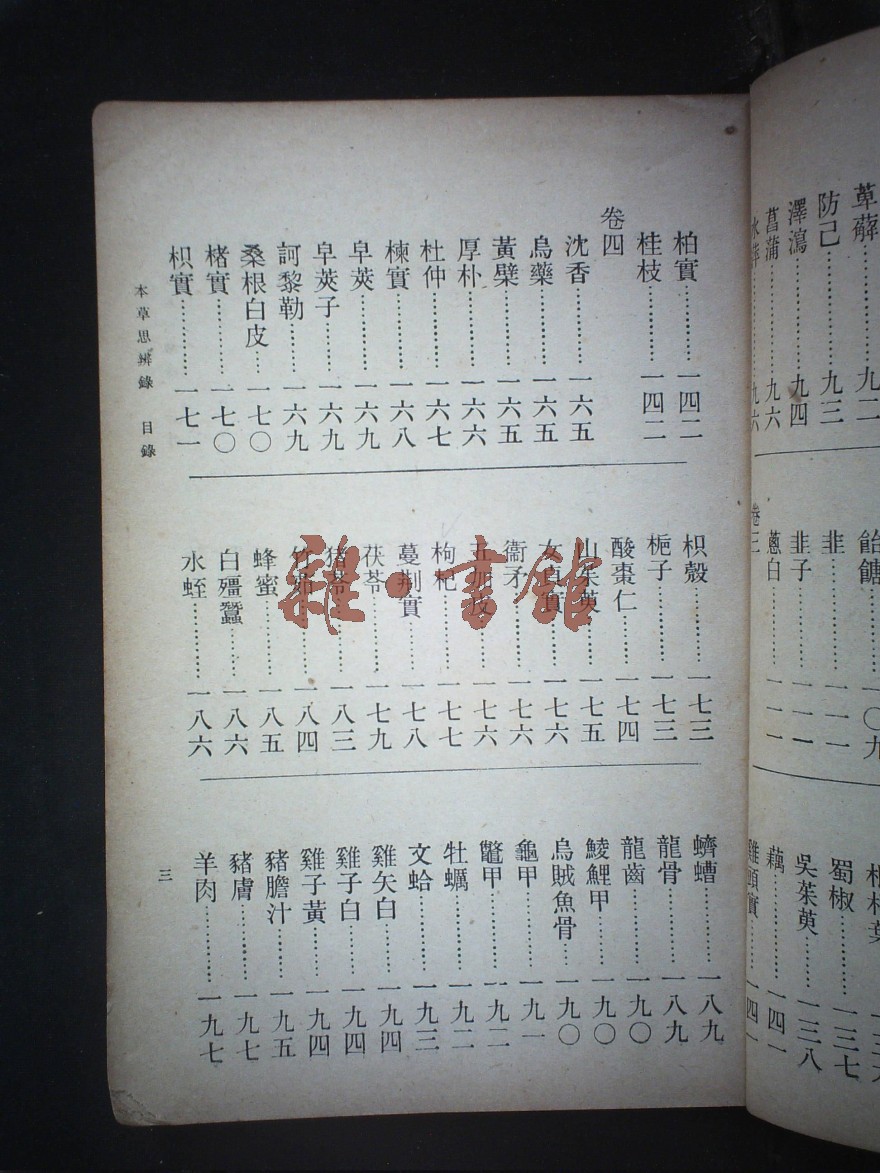 萆薢……九二
防己……九三
澤瀉……九四
菖蒲……九六
飴餹……一〇九
韭……一一一
韭子……一一一
蔥白……一一一
卷三
蜀椒……一三七
吳茱萸……一三八
藕……一四一
雞頭實……一四一
柏實……一四二
桂枝……一四二
卷四
沈香……一六五
烏藥……一六五
黃檗……一六五
厚朴……一六六
杜仲……一六七
楝實……一六八
皁莢……一六九
皁莢子……一六九
訶黎勒……一六九
桑根白皮……一七〇
楮實……一七〇
枳實……一七一
枳殼……一七三
梔子……一七三
酸棗仁……一七四
山茱萸……一七五
女貞實……一七六
衞矛……一七六
五加皮……一七六
枸杞……一七七
蔓荆實……一七八
茯苓……一七九
猪苓……一八三
竹茹……一八四
蜂蜜……一八五
白殭蠶……一八六
水蛭……一八六
蠐螬……一八九
龍骨……一八九
龍齒……一九〇
鯪鯉甲……一九〇
烏賊魚骨……一九〇
龜甲……一九一
鼈甲……一九二
牡蠣……一九二
文蛤……一九三
雞矢白……一九四
雞子白……一九四
雞子黃……一九四
豬膽汁……一九五
豬膚……一九七
羊肉……一九七
本草思辨錄 目錄
三
雜·書館